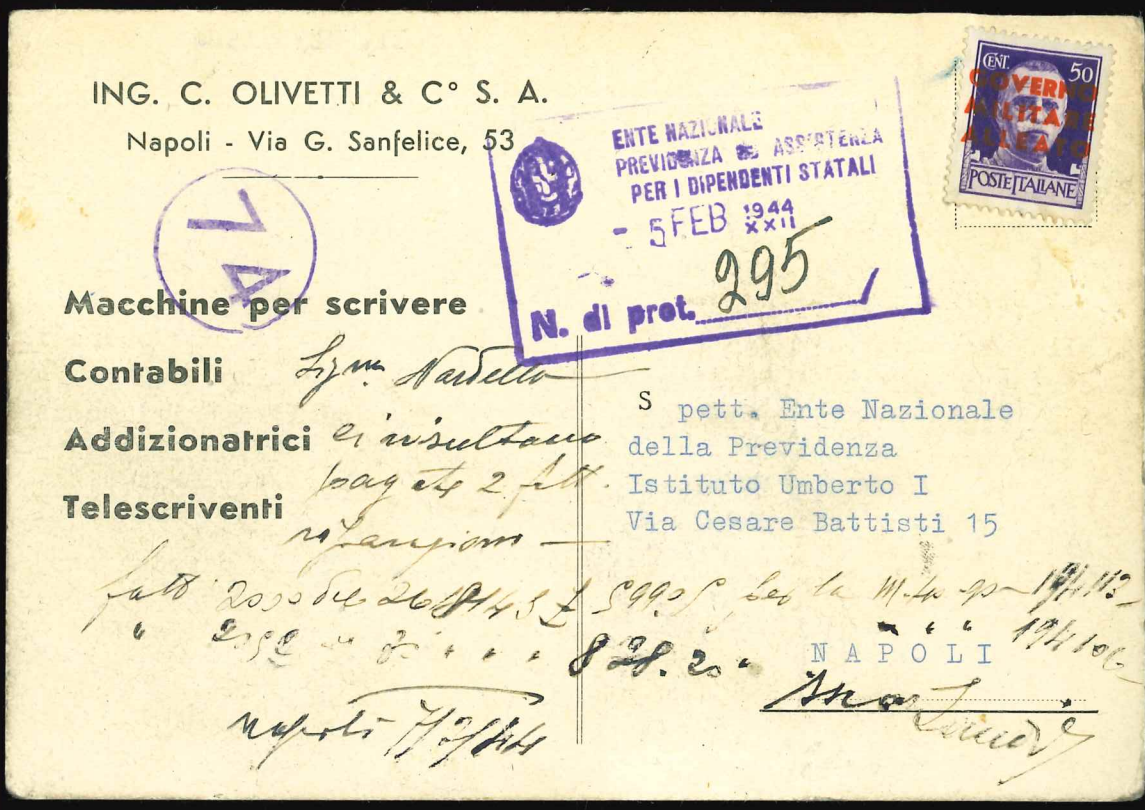 ING. C. OLIVETTI & C° S. A.
Napoli - Via G. Sanfelice, 53
74
Macchine per scrivere
Contabili
Addizionatrici
Telescriventi
ENTE NAZIONALE
PREVIDENZA ED ASSISTENZA
PER I DIPENDENTI STATALI
- 5 FEB 1944
XXII
N. di prot. 295
CENT. 50
GOVERNO
MILITARE
ALLEATO
POSTE ITALIANE
Nardella
ci risultano
pagate 2 fatt.
riparazioni
Spett. Ente Nazionale
della Previdenza
Istituto Umberto I
Via Cesare Battisti 15
fatt
per la
" " "
828.20 "
NAPOLI
Napoli 7/2/44